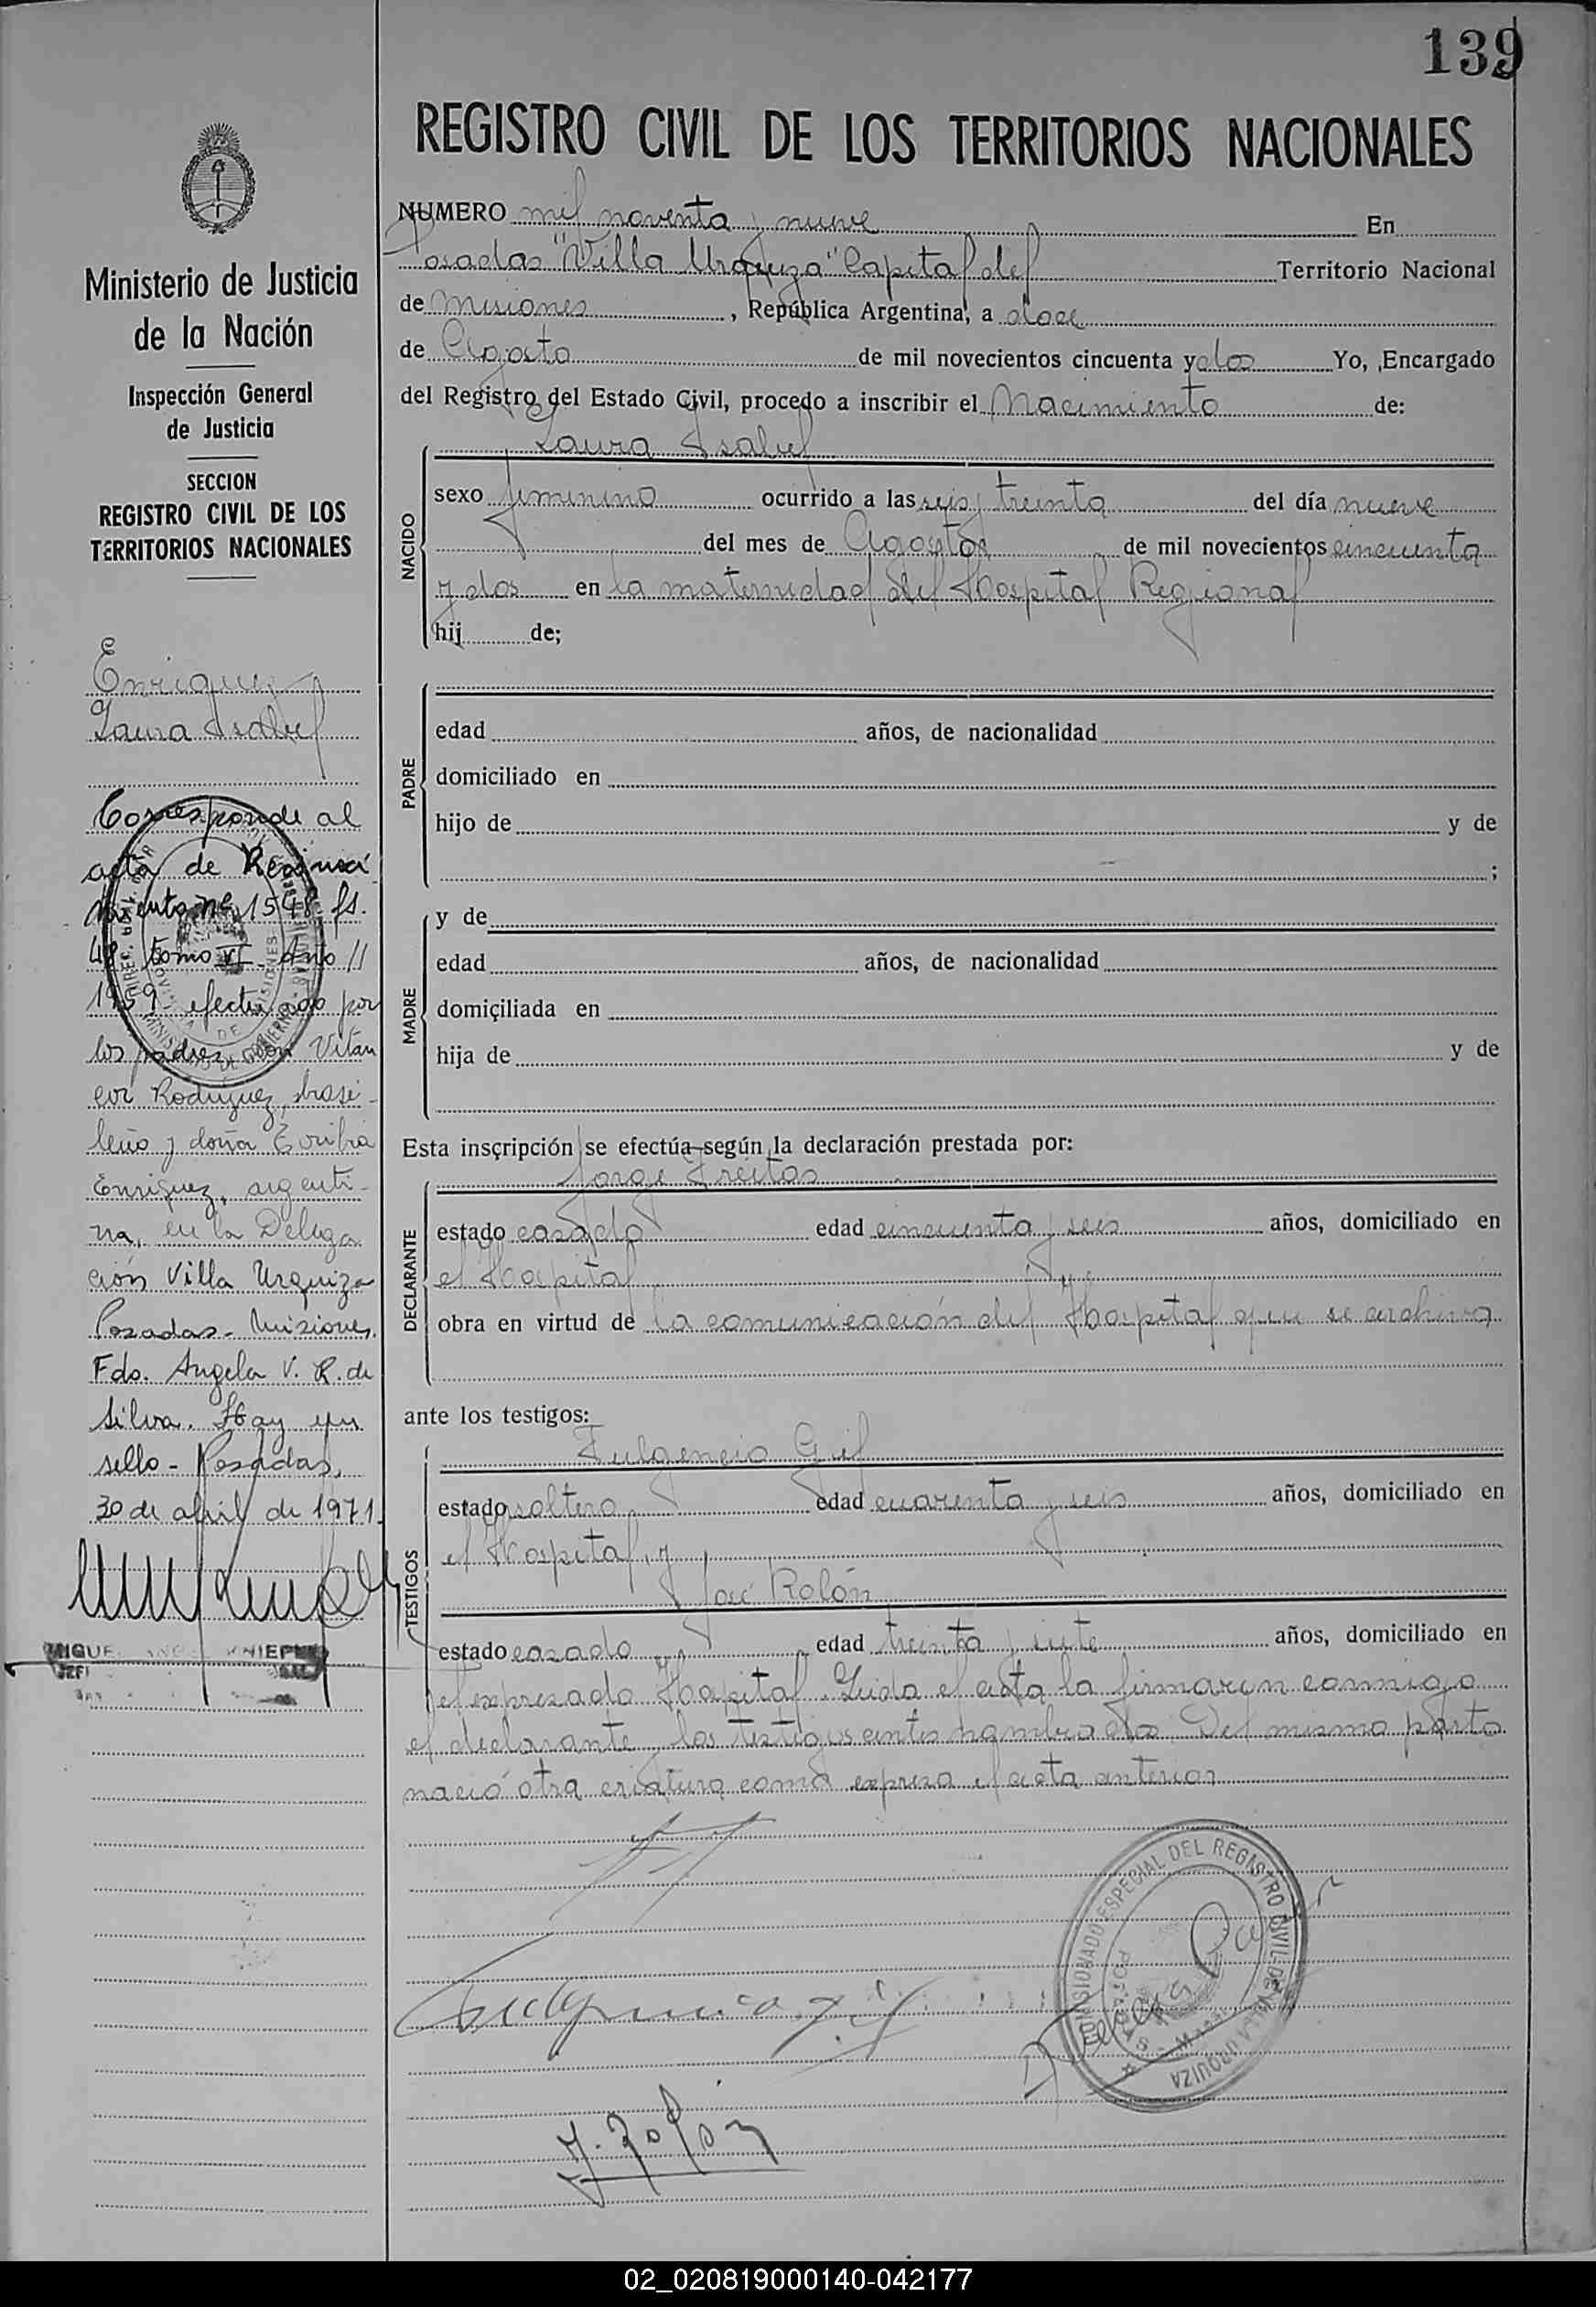 139
REGISTRO CIVIL DE LOS TERRITORIOS NACIONALES
Ministerio de Justicia
de la Nación
Inspección General
de Justicia
SECCION
REGISTRO CIVIL DE LOS
TERRITORIOS NACIONALES
Enriquez
Laura Isabel
Corresponde al
acta de Reconoci
miento nº 1548 fs.
48 tomo VI Año //
1959 efectuado por
los padres don
Rodriguez, brasi-
leño y doña
Enriquez, argenti-
na, en la Delega
ción Villa Urquiza
Posadas - Misiones.
Fdo. Angela V. R. de
Silva. Hay un
sello - Posadas,
30 de abril de 1971
NUMERO mil noventa y nueve En
Posadas "Villa Urquiza" Capital del Territorio Nacional
de Misiones, República Argentina, a doce
de Agosto de mil novecientos cincuenta y dos Yo, Encargado
del Registro del Estado Civil, procedo a inscribir el Nacimiento de:
Laura Isabel
NACIDO
sexo femenino ocurrido a las seis y treinta del día nueve
del mes de Agosto de mil novecientos cincuenta
y dos en la maternidad del Hospital Regional
hij de;
PADRE
edad años, de nacionalidad
domiciliado en
hijo de y de
;
MADRE
y de
edad años, de nacionalidad
domiciliada en
hija de y de
Esta inscripción se efectúa según la declaración prestada por:
Jorge Freitas
DECLARANTE
estado casado edad cincuenta y seis años, domiciliado en
el Hospital y
obra en virtud de la comunicación del Hospital que se archiva
ante los testigos:
Fulgencio Gil
TESTIGOS
estado soltero edad cuarenta y seis años, domiciliado en
el Hospital, y
José Rolón
estado casado edad treinta y siete años, domiciliado en
el expresado Hospital. Leida el acta la firmaron conmigo
el declarante y los testigos antes nombrados. Del mismo parto
nació otra criatura como expresa el acta anterior
COMISIONADO ESPECIAL DEL REGISTRO CIVIL DE VILLA URQUIZA
POSADAS
Fulgencio Gil
J. Rolón
02_020819000140-042177